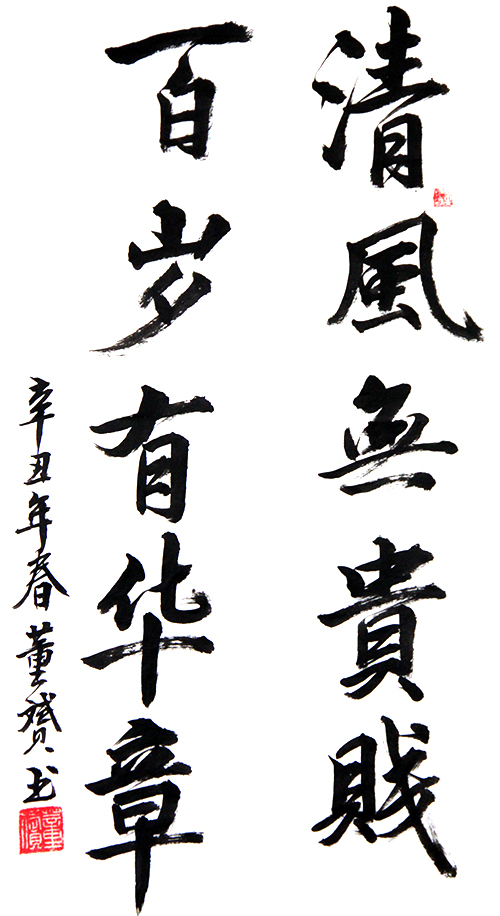 清風無貴賤
百岁有华章
辛丑年春董赟书